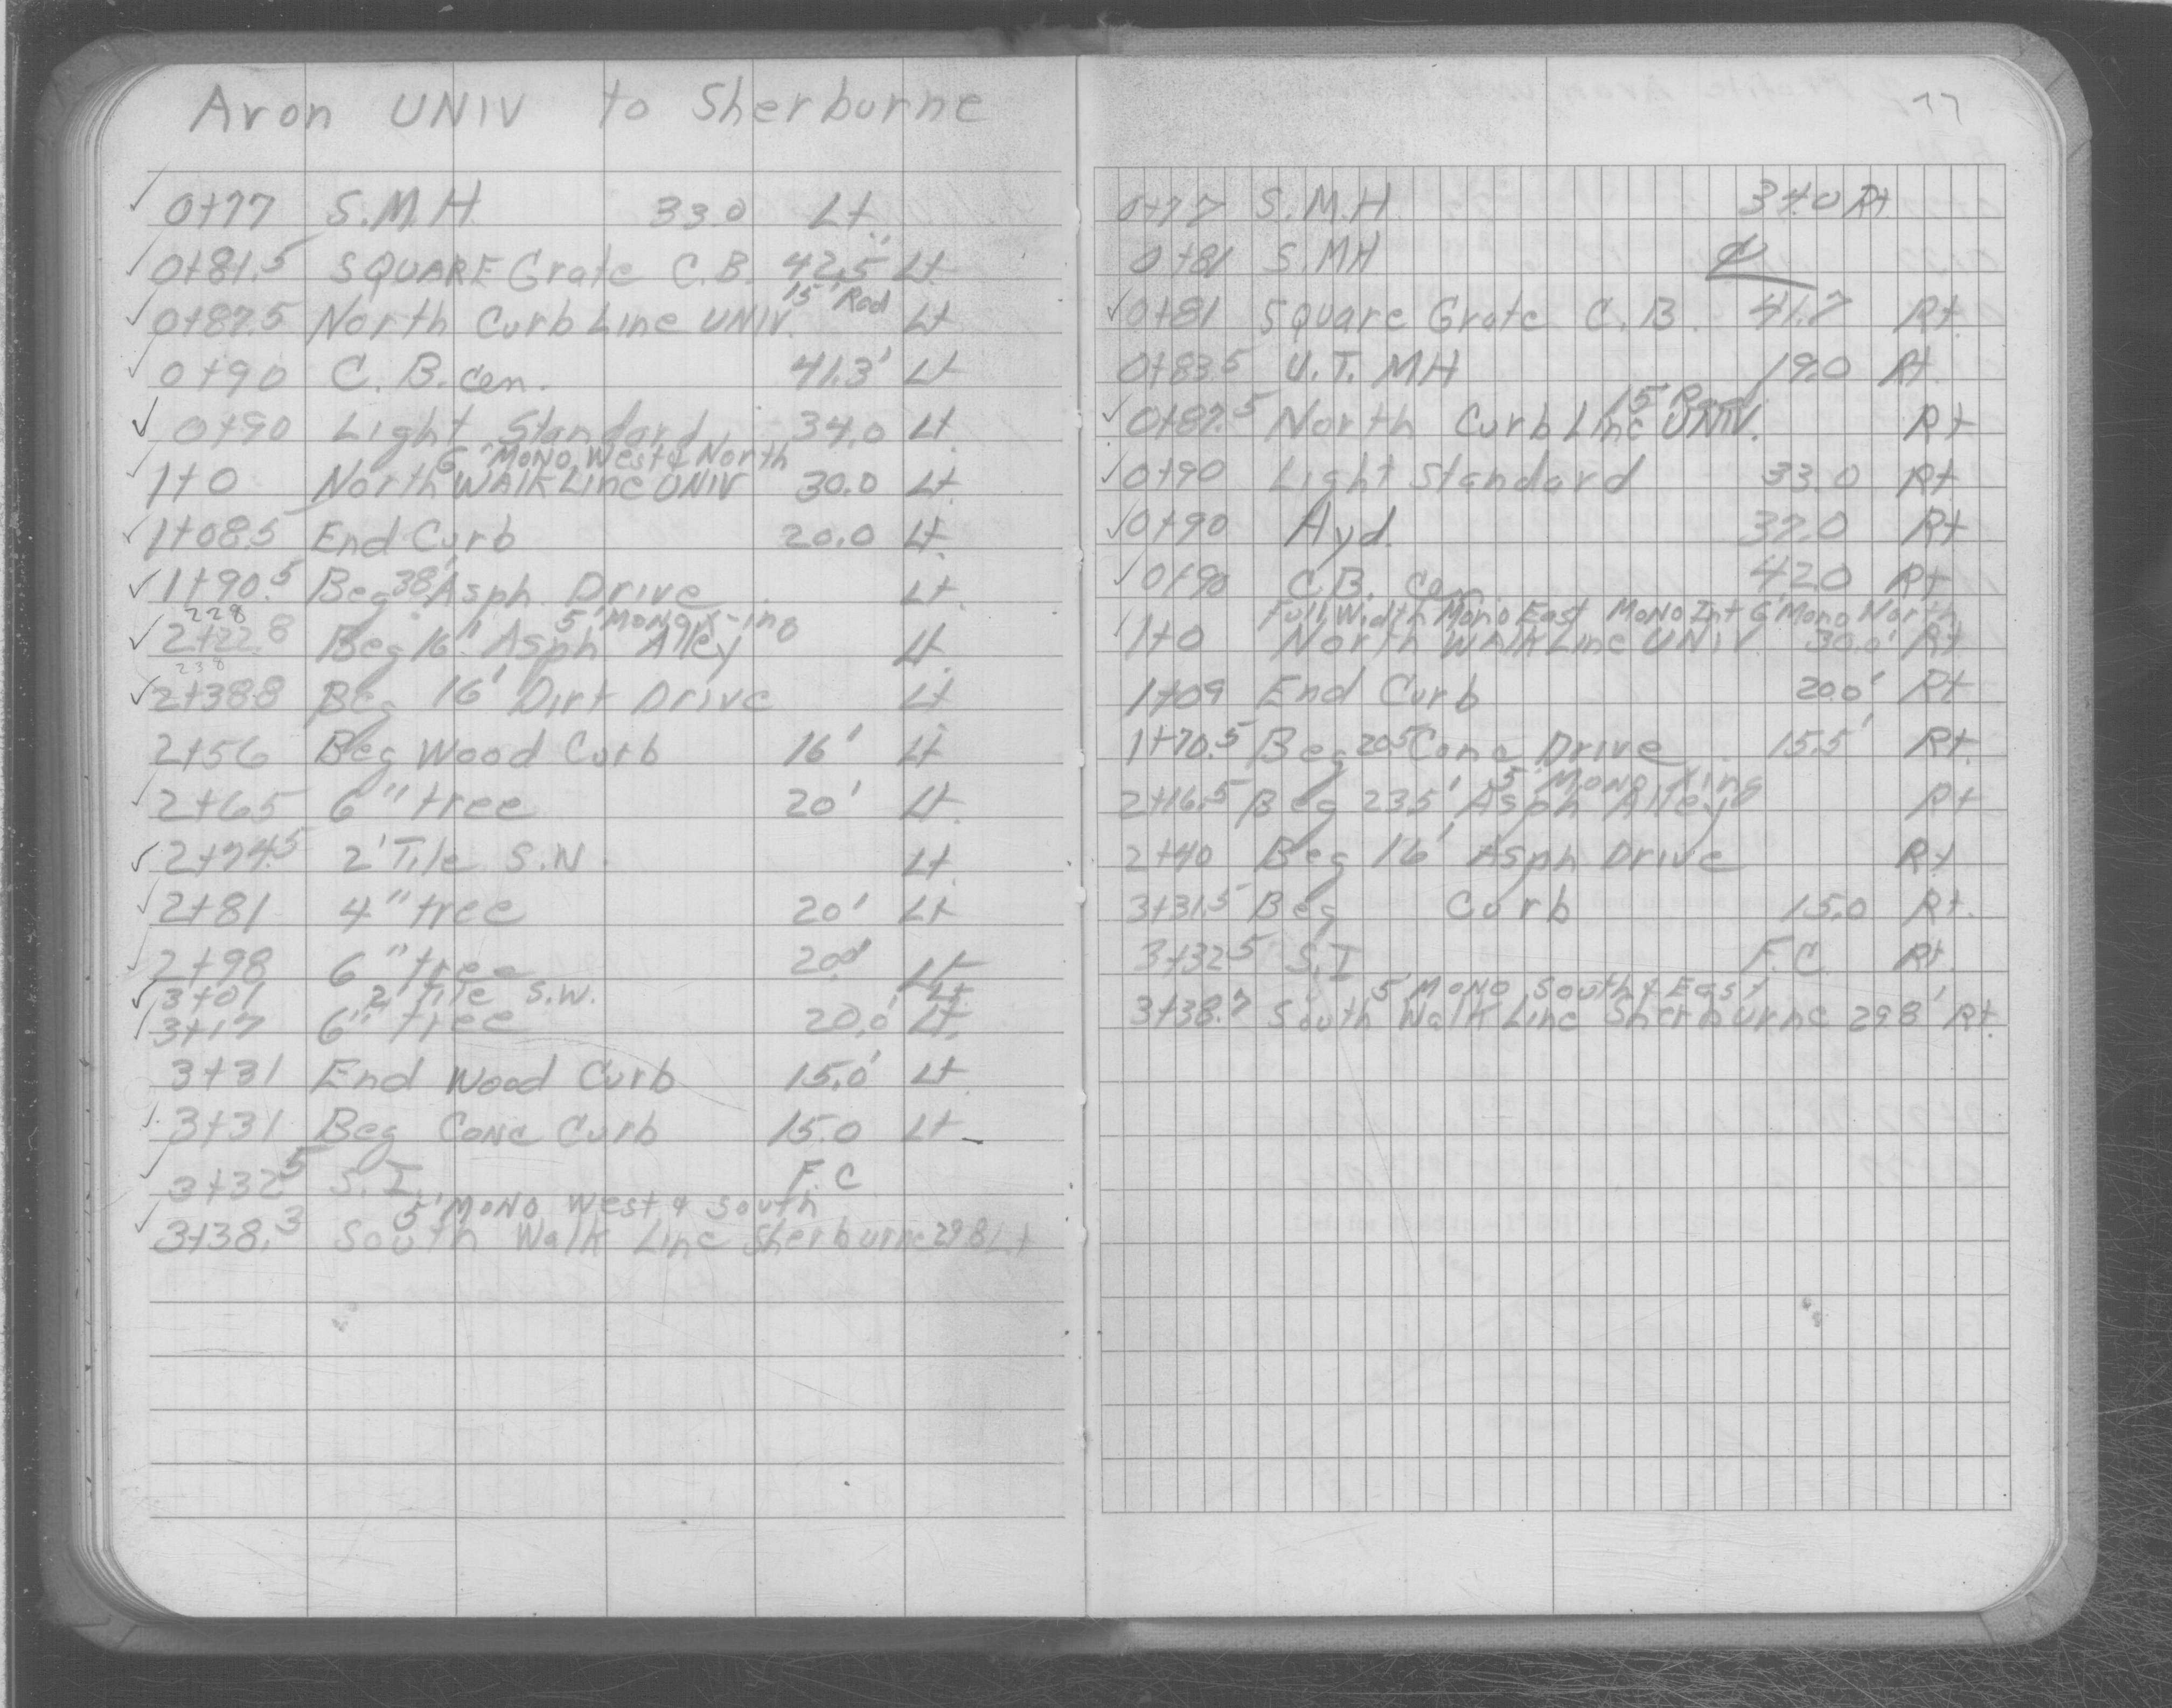 Avon UNIV to Sherburne
✓ 0+77 S.M.H. 33.0 Lt.
✓ 0+81.5 SQUARE Grate C.B. 42.5' Lt.
15' Rad
✓ 0+87.5 North Curb Line UNIV. Lt
✓ 0+90 C.B. cen. 41.3' Lt
✓ 0+90 Light Standard 34.0 Lt.
6' MONO West & North
✓ 1+0 North WALK Line UNIV 30.0 Lt.
✓ 1+08.5 End Curb 20.0 Lt.
✓ 1+90.5 Beg 38' Asph Drive Lt.
228 5' MONO X-ing
✓ 2+22.8 Beg 16' Asph Alley Lt.
238
✓ 2+38.8 Beg 16' Dirt Drive Lt
2+56 Beg Wood Curb 16' Lt
✓ 2+65 6" tree 20' Lt.
✓ 2+74.5 2' Tile S.W. Lt.
✓ 2+81 4" tree 20' Lt
✓ 2+98 6" tree 20.0' Lt
✓ 3+01 2' Tile S.W. Lt.
✓ 3+17 6" tree 20.0' Lt.
3+31 End Wood Curb 15.0' Lt
✓ 3+31 Beg Conc Curb 15.0 Lt
✓ 3+32.5 S.I. F.C
5' MONO West & South
✓ 3+38.3 South Walk Line Sherburne 29.8 Lt
77
0+77 S.M.H 34.0 Rt
0+81 S.MH ℄
✓ 0+81 Square Grate C.B. 41.7 Rt.
0+83.5 U.T. MH 19.0 Rt.
15' Rad
✓ 0+87.5 North Curb Line UNIV. Rt
✓ 0+90 Light Standard 33.0 Rt
✓ 0+90 Hyd. 37.0 Rt
✓ 0+90 C.B. Cen. 42.0 Rt
Full Width Mono East MONO Int 6' Mono North
1+0 North WALK Line UNIV 30.0' Rt
1+09 End Curb 20.0' Rt
1+70.5 Beg 20.5' Conc Drive 15.5' Rt.
5' MONO Xing
2+16.5 Beg 23.5' Asph Alley Rt
2+40 Beg 16' Asph Drive Rt
3+31.5 Beg Curb 15.0 Rt.
3+32.5 S.I F.C. Rt.
5' MONO South & East
3+38.7 South Walk Line Sherburne 29.8' Rt.